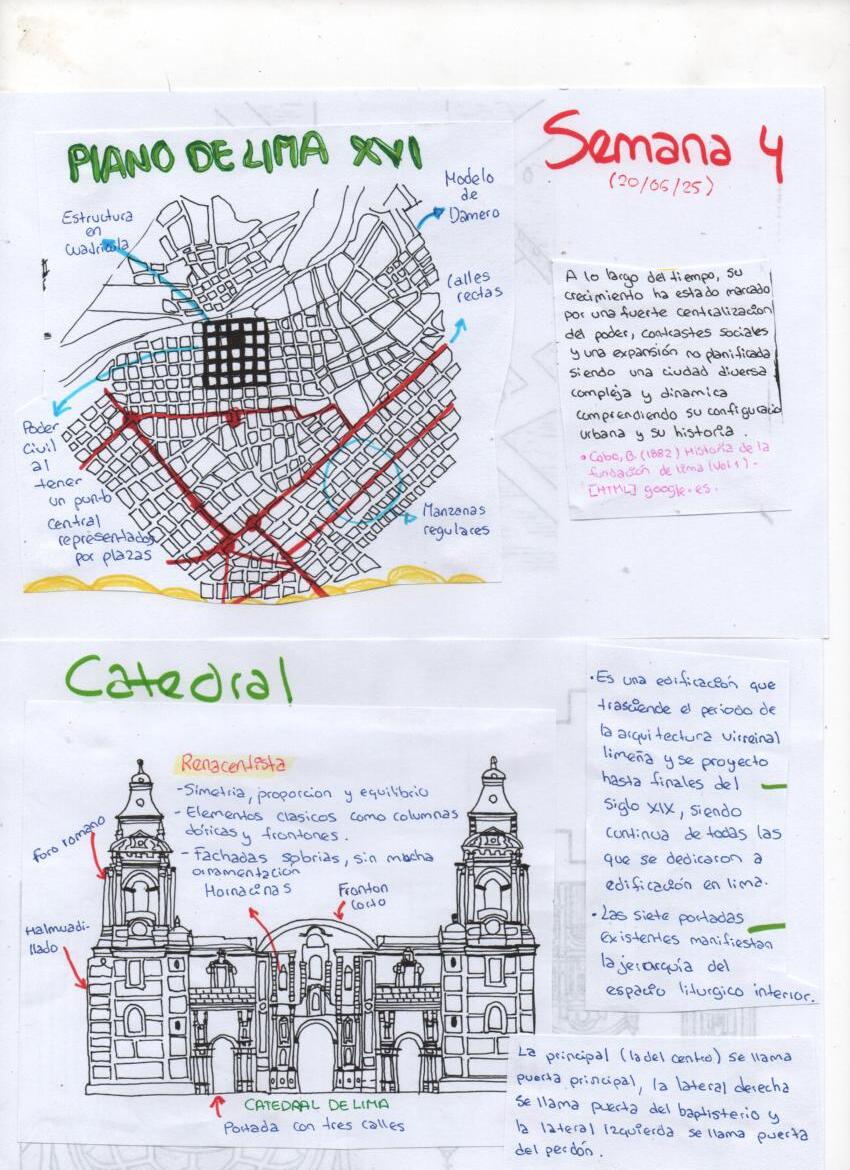 PLANO DE LIMA XVI
Semana 4
(20/06/25)
Estructura
en
Cuadricula
Modelo
de
Damero
Calles
rectas
Poder
civil
al
tener
un punto
central
representados
por plazas
Manzanas
regulares
A lo largo del tiempo, su
crecimiento ha estado marcado
por una fuerte centralizacion
del poder, contrastes sociales
y una expansión no planificada
siendo una ciudad diversa
compleja y dinamica
comprendiendo su configuracio
urbana y su historia.
• Cobo, B. (1882) Historia de la
fundación de Lima (Vol 1).
[HTML] google.es.
Catedral
Renacentista
-Simetria, proporcion y equilibrio
- Elementos clasicos como columnas
dóricas y frontones.
- Fachadas sobrias, sin mucha
ornamentación
Hornacinas
Fronton
Corto
Foro romano
Halmuadi-
llado
CATEDRAL DE LIMA
Portada con tres calles
•Es una edificación que
trasciende el periodo de
la arquitectura virreinal
limeña y se proyecto
hasta finales del
siglo XIX, siendo
continua de todas las
que se dedicaron a
edificación en lima.
• Las siete portadas
existentes manifiestan
la jerarquía del
espacio liturgico interior.
La principal (la del centro) se llama
puerta principal, la lateral derecha
se llama puerta del baptisterio y
la lateral izquierda se llama puerta
del perdón.